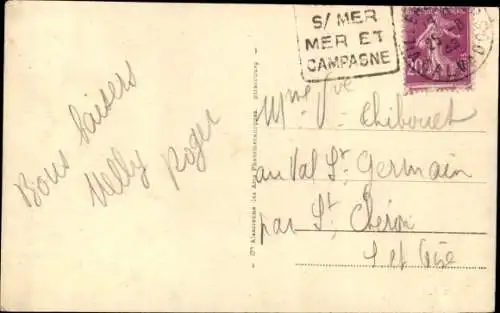 S/ MER
MER ET
CAMPAGNE
CALVADOS
Bons baisers
Nelly Roger
Mme Vve Thibouet
au Val St. Germain
par St. Chéron
S et Oise